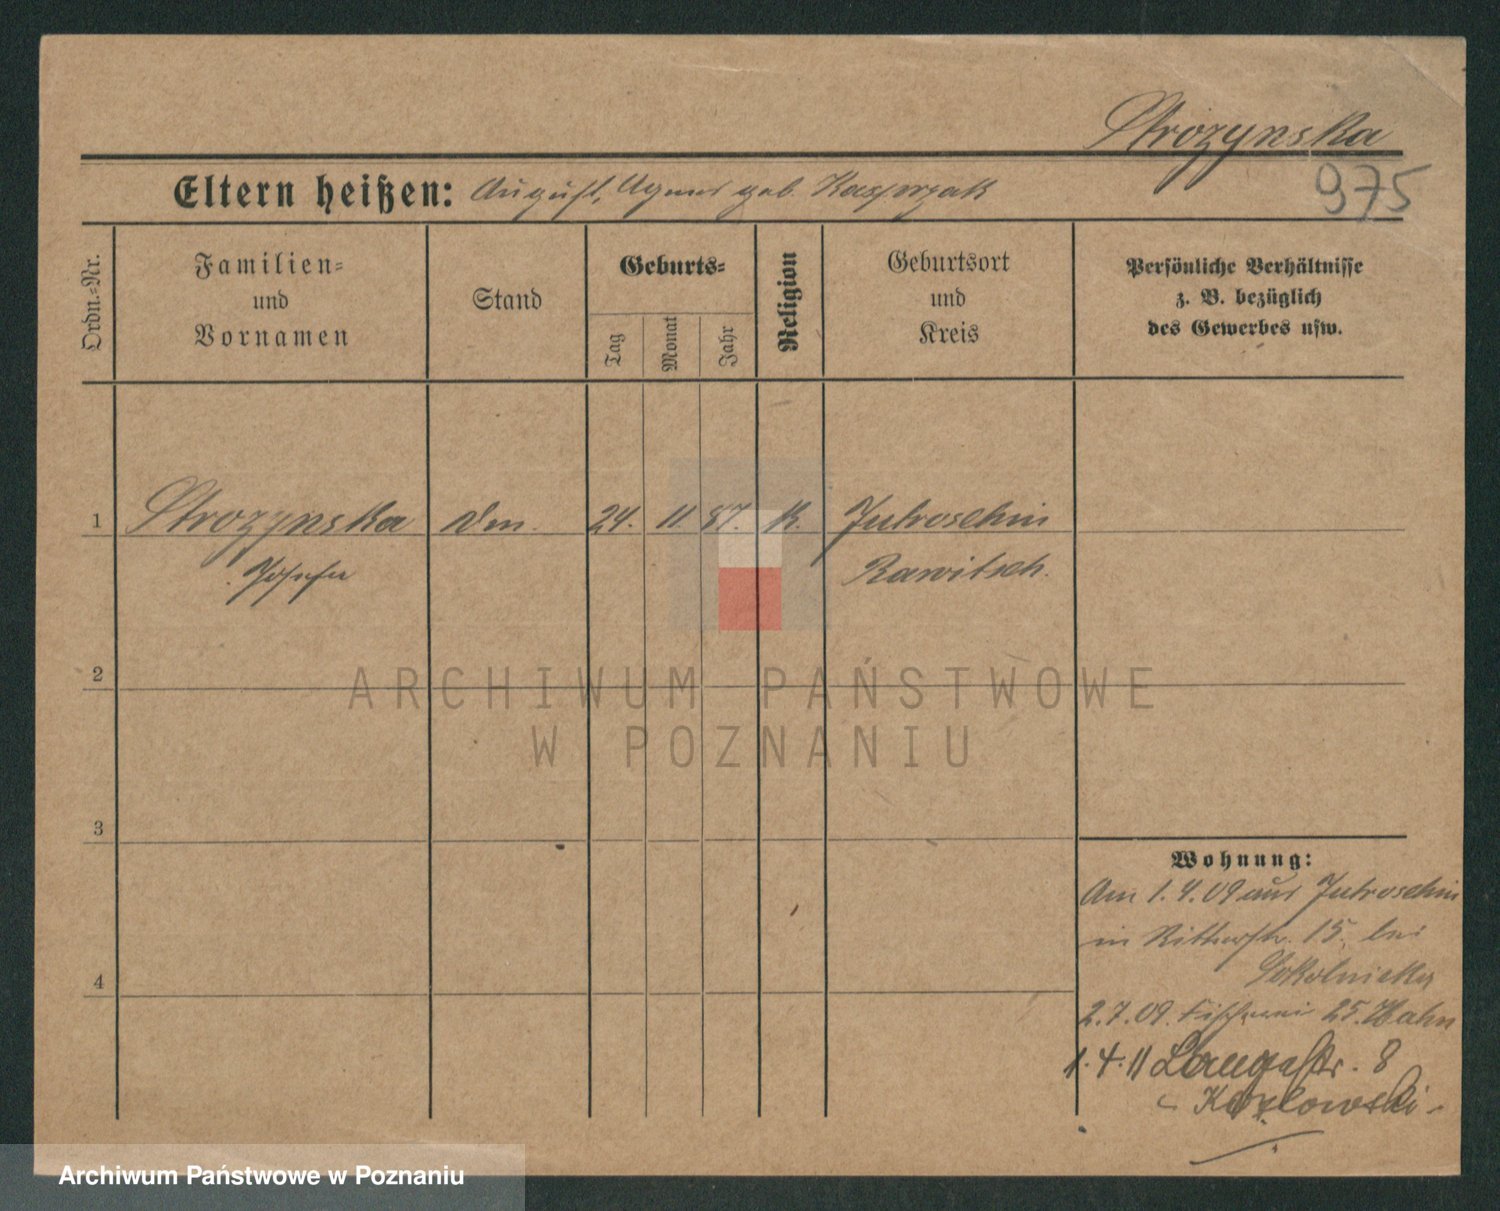 Strozynska
975
Eltern heißen: August, Agnes geb. Kasprzak
Ordn.=Nr.
Familien=
und
Vornamen
Stand
Geburts=
Tag
Monat
Jahr
Religion
Geburtsort
und
Kreis
Persönliche Verhältnisse
z. B. bezüglich
des Gewerbes usw.
1 Strozynska 24. 11 87. K. Jutroschin
Josefa Rawitsch.
2
3
4
ARCHIWUM PAŃSTWOWE
W POZNANIU
Wohnung:
Am 1.4.09 aus Jutroschin
in Ritterstr. 15. bei
2.7.09. Fischerei 25. Hahn
1.4.11 Langestr. 8
Kozlowski
Archiwum Państwowe w Poznaniu